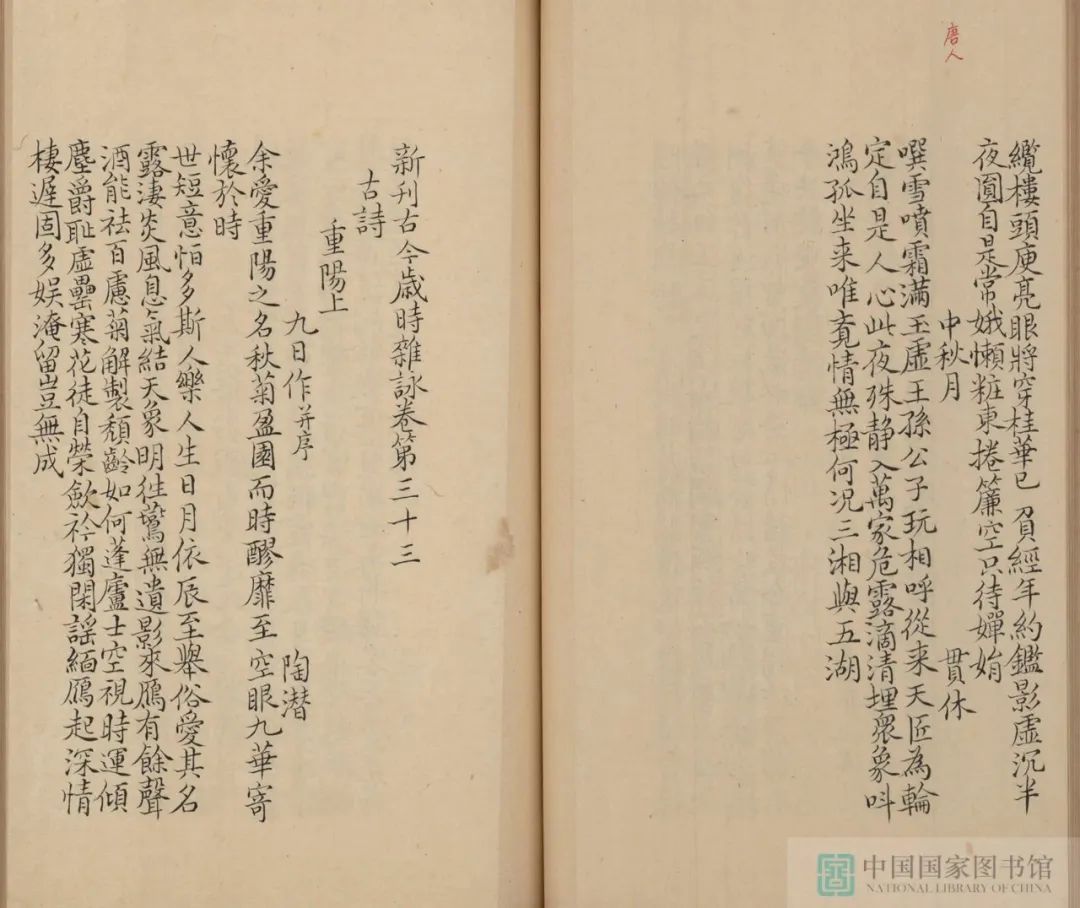 唐人
纜樓頭庾亮眼將穿桂華已負經年約鑑影虛沉半
夜圓自是常娥懶粧東捲簾空只待嬋娟
中秋月 貫休
噀雪噴霜滿玉虛王孫公子玩相呼從来天匠為輪
定自是人心此夜殊静入萬家危露滴清埋衆象叫
鴻孤坐来唯覔情無極何况三湘與五湖
新刊古今歳時雜詠卷第三十三
古詩
重陽上
九日作并序 陶潜
余愛重陽之名秋菊盈園而時醪靡至空眼九華寄
懷於時
世短意怕多斯人樂人生日月依辰至舉俗愛其名
露淒炎風息氣結天象明徃鷰無遺影來鴈有餘聲
酒能祛百慮菊解製頹齡如何蓬廬士空視時運傾
塵爵耻虛罍寒花徒自榮歛衿獨閑謡緬鴈起深情
棲遲固多娱淹留豈無成
中国国家图书馆
NATIONAL LIBRARY OF CHINA